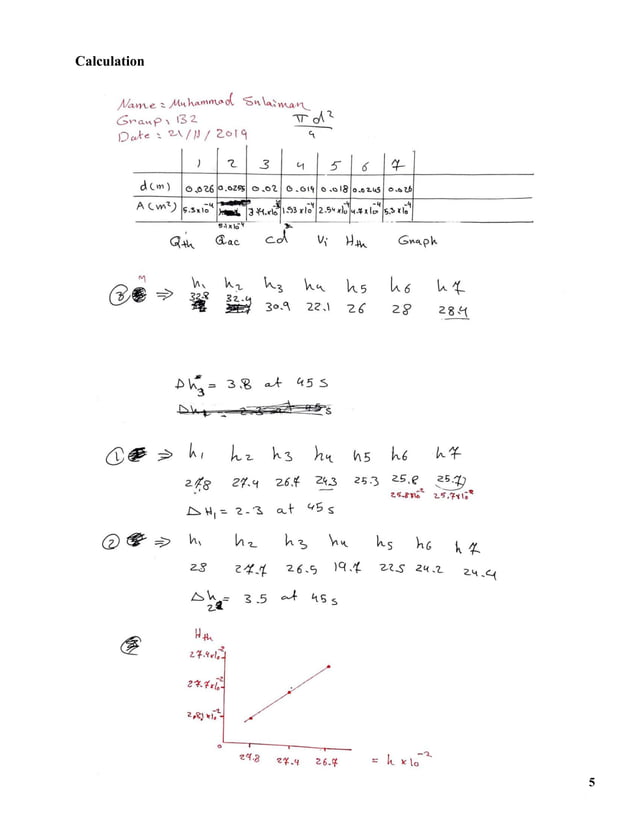 Calculation
Name: Muhammad Sulaiman
Group: B2
π d²
4
Date: 21/11/2019
1 2 3 4 5 6 7
d(m) 0.026 0.0255 0.02 0.014 0.018 0.0245 0.026
A(m²) 5.3x10⁻⁴ 3.14x10⁻⁴ 1.53x10⁻⁴ 2.54x10⁻⁴ 4.7x10⁻⁴ 5.3x10⁻⁴
5.1x10⁻⁴
Qth Qac Cd Vi Hth Graph
M
③ ⇒ h₁ h₂ h₃ h₄ h5 h6 h7
32.8 32.4 30.9 22.1 26 28 28.4
Δh₃ = 3.8 at 45 s
① ⇒ h₁ h₂ h3 h4 h5 h6 h7
27.8 27.4 26.7 24.3 25.3 25.8 25.7
25.8x10⁻² 25.7x10⁻²
ΔH₁ = 2.3 at 45s
② ⇒ h₁ h₂ h3 h4 h5 h6 h7
28 27.7 26.5 19.7 22.5 24.2 24.4
Δh₂ = 3.5 at 45s
Hth
27.4x10⁻²
27.7x10⁻²
2.81x10⁻²
0
27.8 27.4 26.7 = h x10⁻²
5